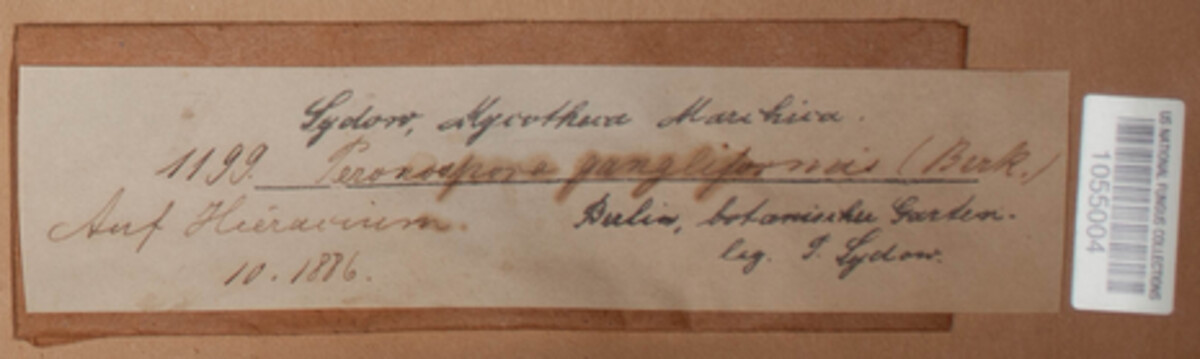 Sydow, Mycotheca Marchica.
1199. Peronospora gangliformis (Berk.)
Auf Hieracium.
Berlin, botanischer Garten.
10. 1886.
leg. P. Sydow.
US NATIONAL FUNGUS COLLECTIONS
1055004